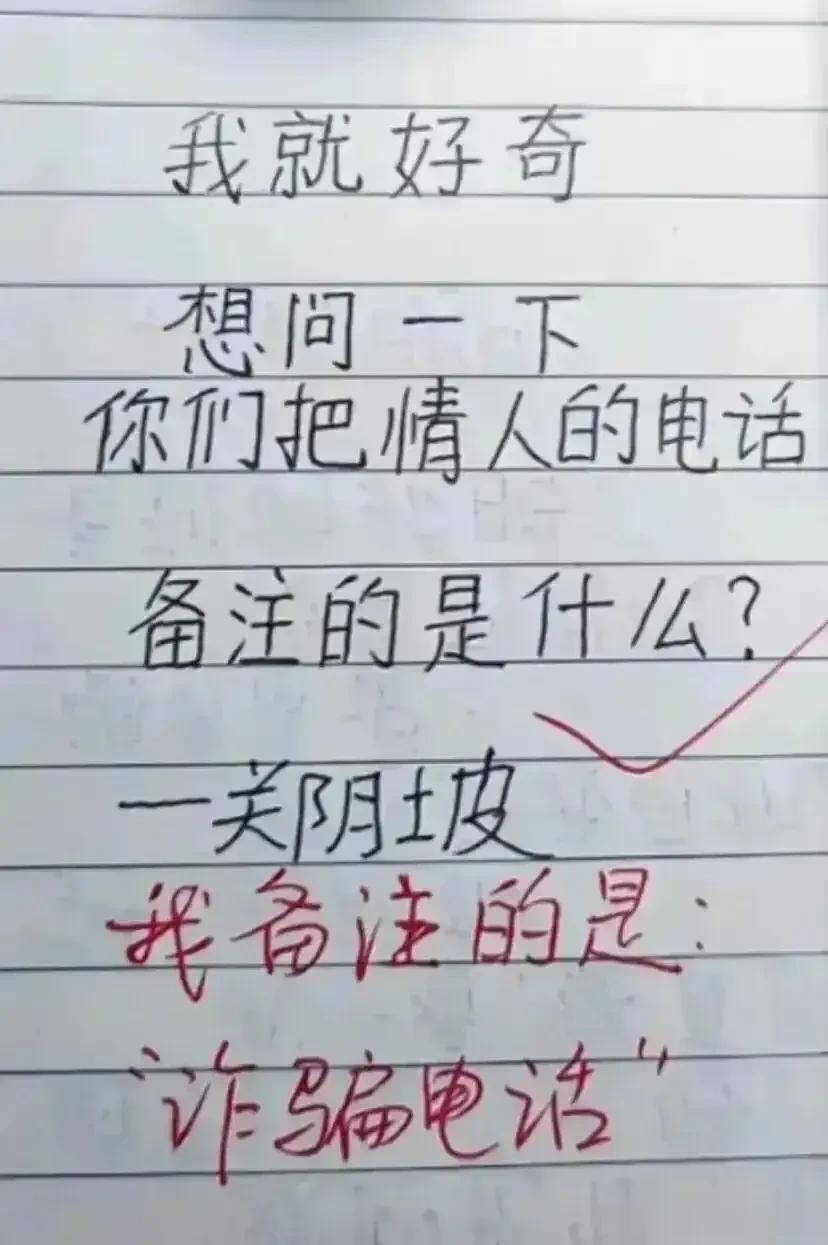 我就好奇
想问一下
你们把情人的电话
备注的是什么?
一关阴坡
我备注的是:
“诈骗电话”